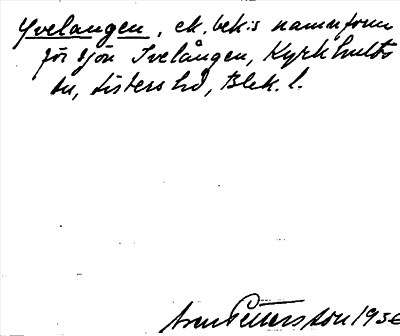 Yvelangen, ek. bek:s namnform
för sjön Ivelången, Kyrkhults
sn, Listers hd, Blek. l.
Pettersson 1936